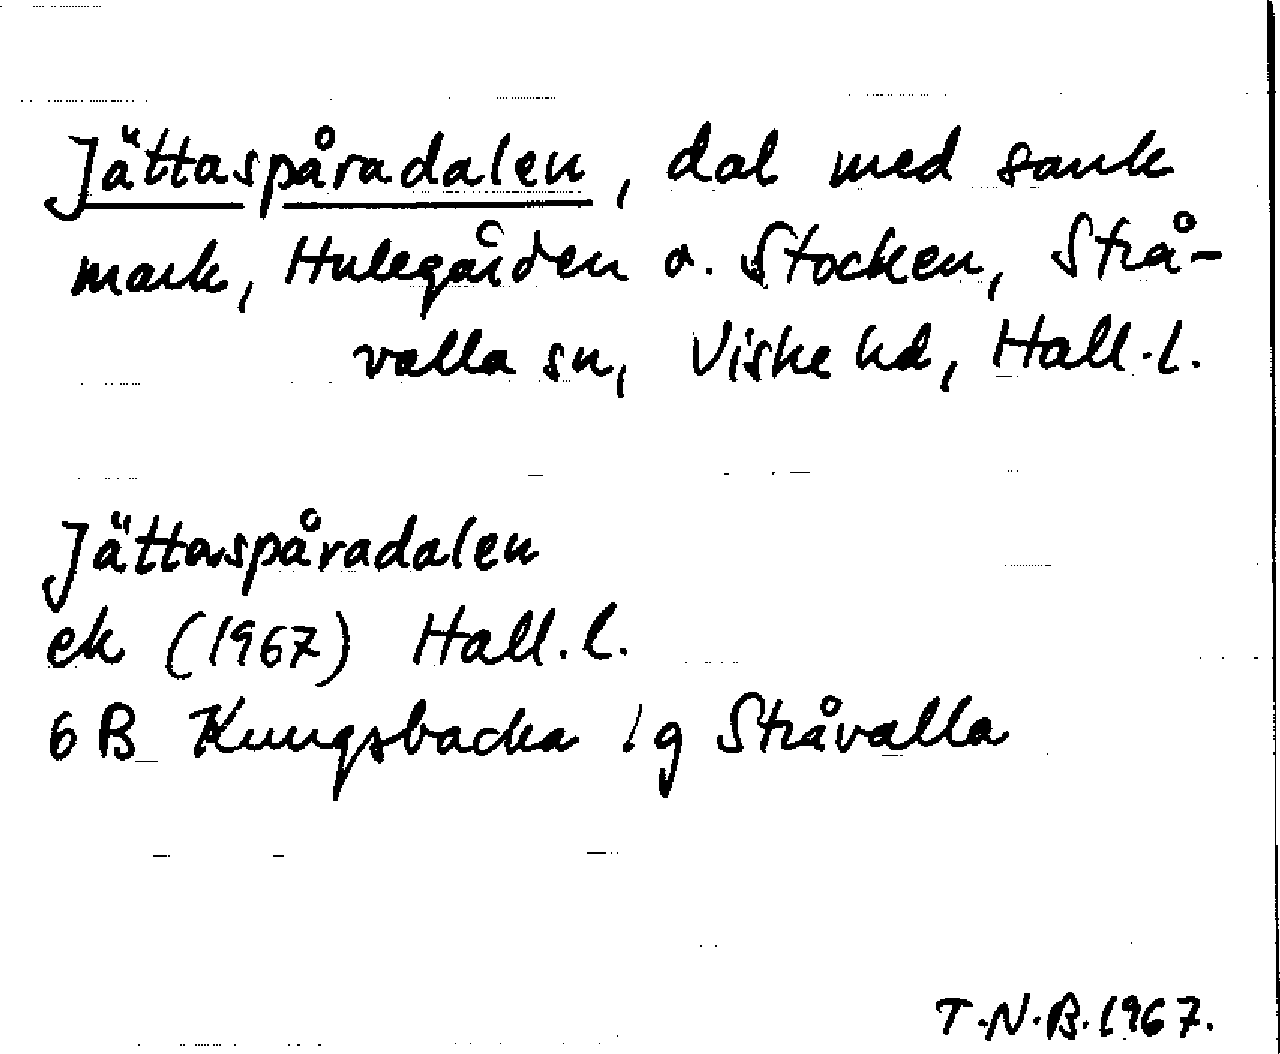 Jättaspåradalen, dal med sank
mark, Hulegården o. Stocken, Strå-
valla sn, Viske hd, Hall.l.
Jättaspåradalen
ek (1967) Hall.l.
6B Kungsbacka 1g Stråvalla
T.N.B.1967.